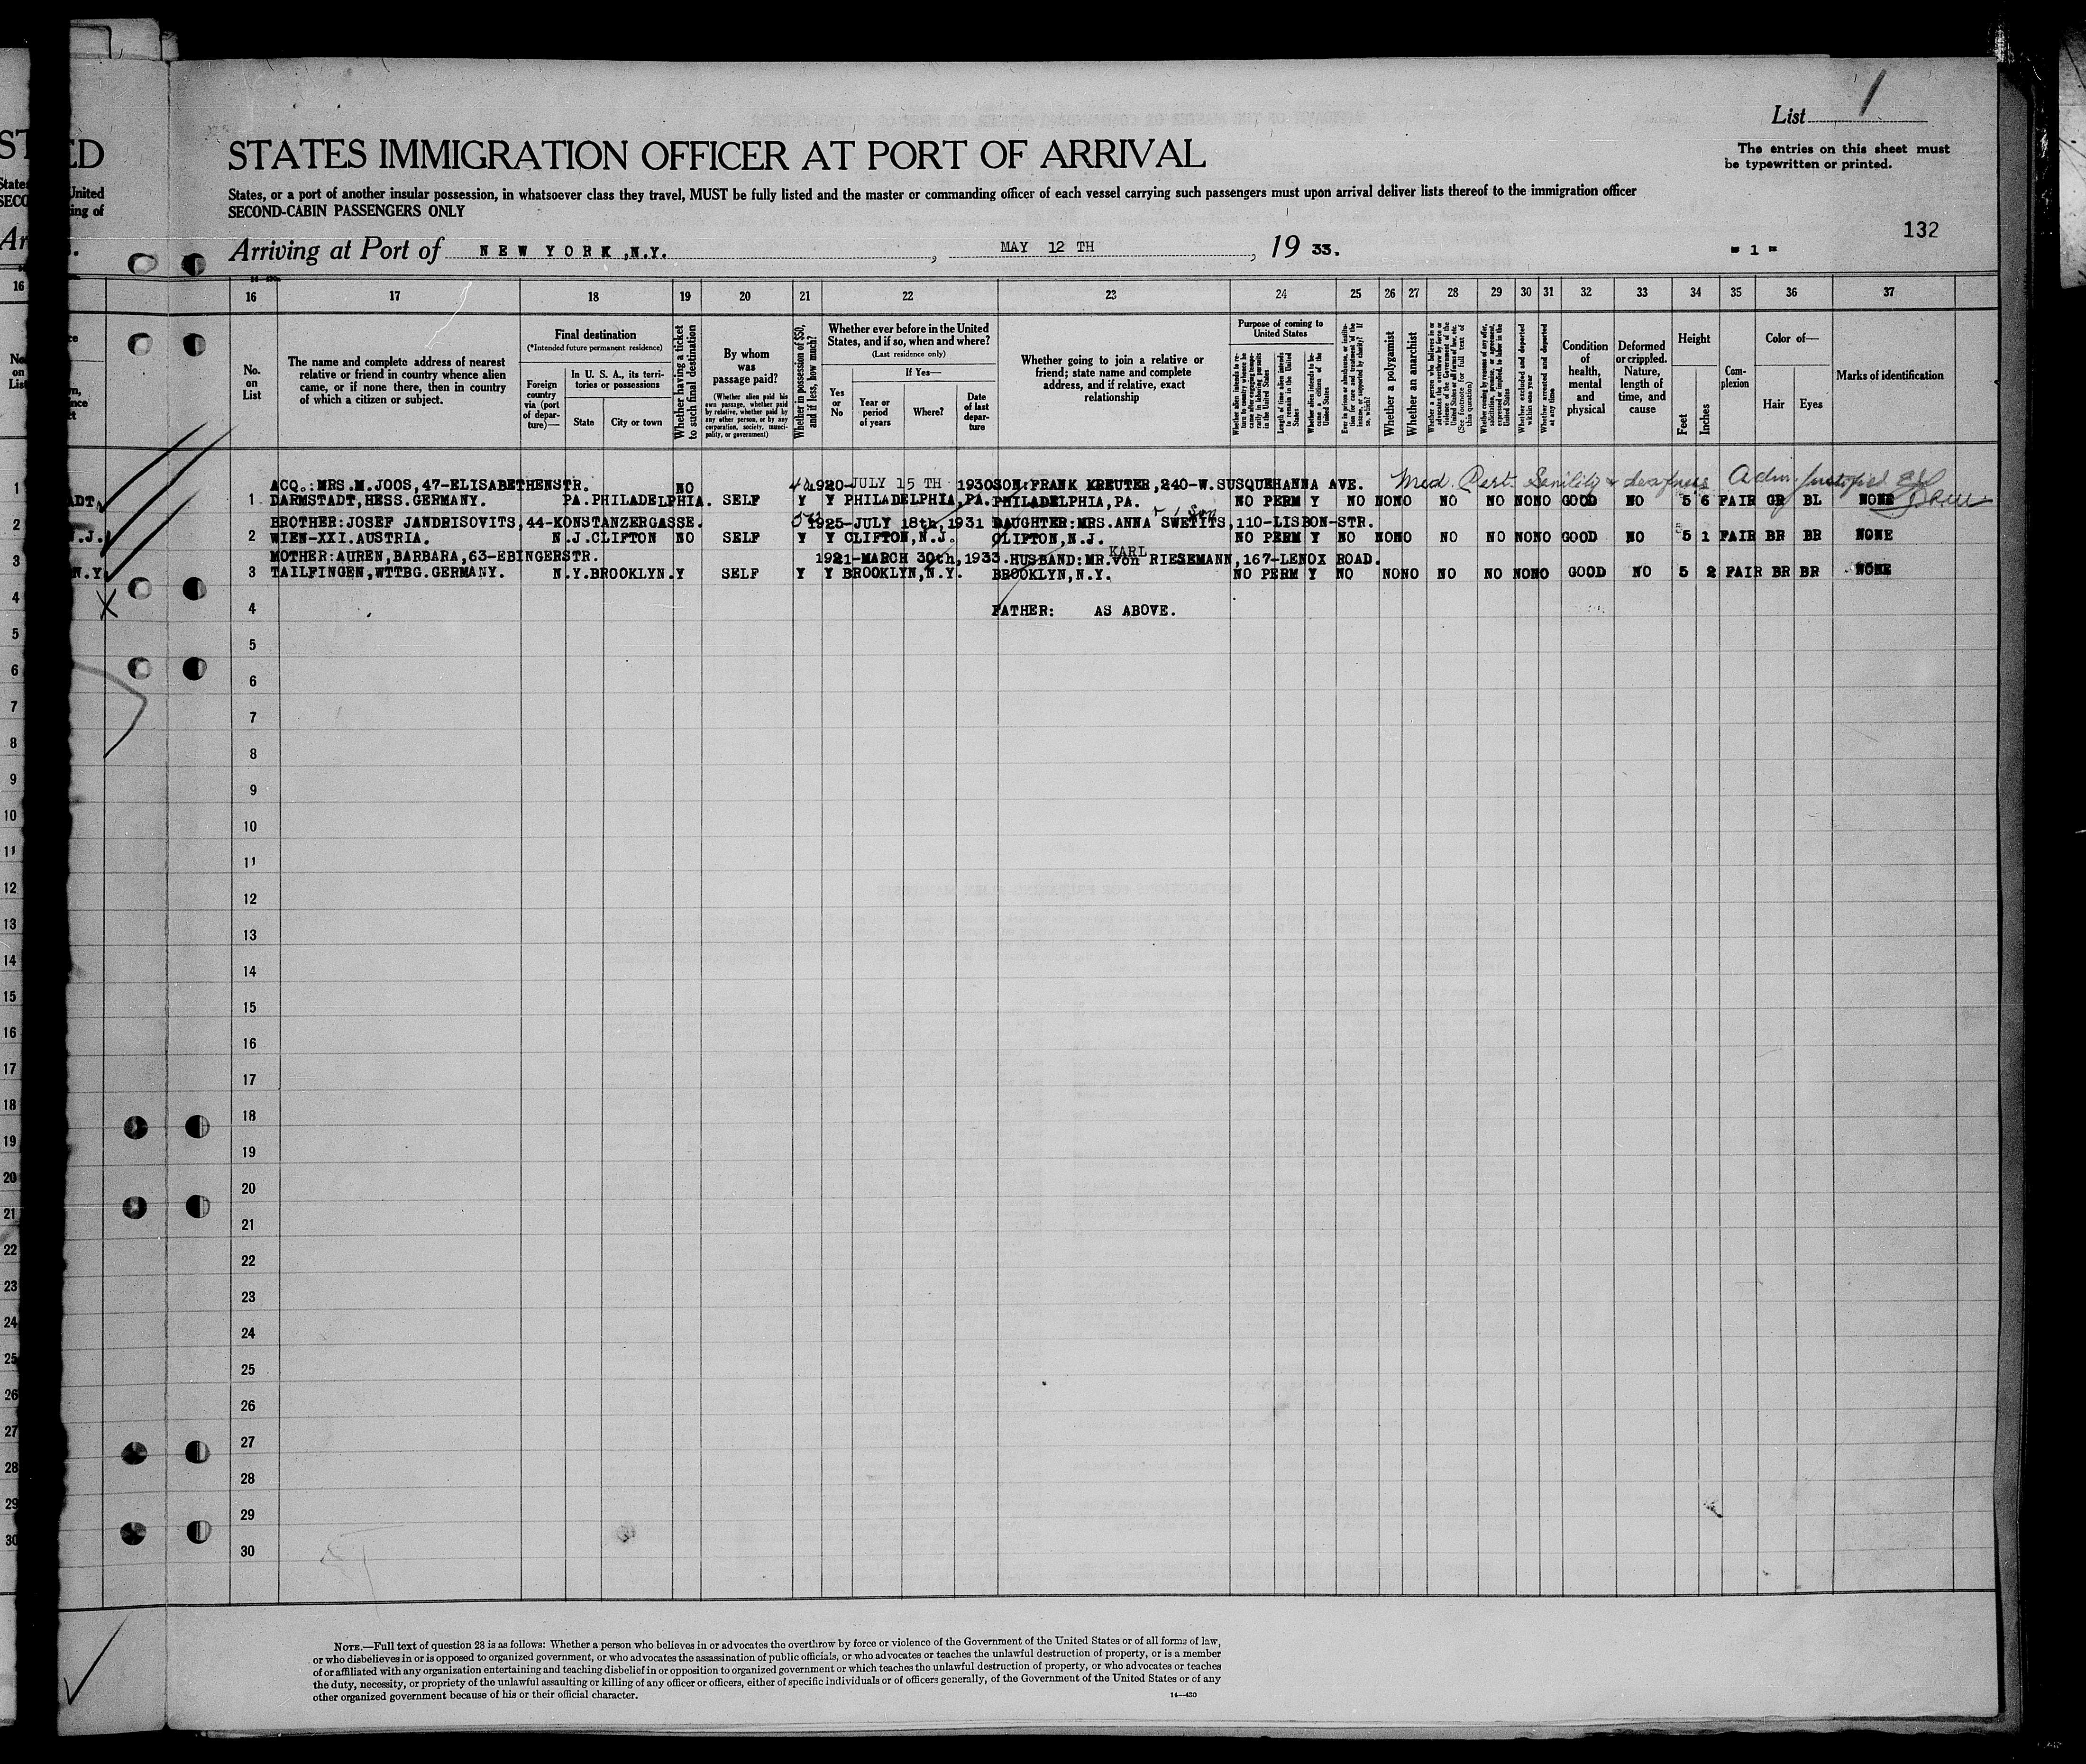 List 1
STATES IMMIGRATION OFFICER AT PORT OF ARRIVAL
The entries on this sheet must
be typewritten or printed.
States, or a port of another insular possession, in whatsoever class they travel, MUST be fully listed and the master or commanding officer of each vessel carrying such passengers must upon arrival deliver lists thereof to the immigration officer
SECOND-CABIN PASSENGERS ONLY
132
Arriving at Port of NEW YORK ,N.Y. , MAY 12 TH , 19 33. " 1 "
16 17 18 19 20 21 22 23 24 25 26 27 28 29 30 31 32 33 34 35 36 37
No. on List
The name and complete address of nearest relative or friend in country whence alien came, or if none there, then in country of which a citizen or subject.
Final destination
(*Intended future permanent residence)
Foreign country via (port of departure)—
In U. S. A., its territories or possessions
State
City or town
Whether having a ticket to such final destination
By whom was passage paid?
(Whether alien paid his own passage, whether paid by relative, whether paid by any other person, or by any corporation, society, municipality, or government)
Whether in possession of $50, and if less, how much?
Whether ever before in the United States, and if so, when and where?
(Last residence only)
If Yes—
Yes or No
Year or period of years
Where?
Date of last departure
Whether going to join a relative or friend; state name and complete address, and if relative, exact relationship
Purpose of coming to United States
Length of time alien intends to remain in the United States
Whether alien intends to become a citizen of the United States
Whether a polygamist
Whether an anarchist
Whether excluded and deported within one year
Whether arrested and deported at any time
Condition of health, mental and physical
Deformed or crippled. Nature, length of time, and cause
Height
Feet
Inches
Complexion
Color of—
Hair
Eyes
Marks of identification
ACQ.:MRS.M.JOOS,47-ELISABETHENSTR. NO 1920-JULY 15 TH 1930 SON:FRANK KREUTER,240-W.SUSQUEHANNA AVE. Med. Cert. Senility & deafness Adm.
1 DARMSTADT,HESS.GERMANY. PA.PHILADELPHIA. SELF Y Y PHILADELPHIA,PA. PHILADELPHIA,PA. NO PERM Y NO NONO NO NO NONO GOOD NO 5 6 FAIR GR BL NONE
BROTHER:JOSEF JANDRISOVITS,44-KONSTANZERGASSE. 1925-JULY 18th,1931 DAUGHTER:MRS.ANNA SWETITS,110-LISBON-STR.
2 WIEN-XXI.AUSTRIA. N.J.CLIFTON NO SELF Y Y CLIFTON,N.J. CLIFTON,N.J. NO PERM Y NO NONO NO NO NONO GOOD NO 5 1 FAIR BR BR NONE
MOTHER:AUREN,BARBARA,63-EBINGERSTR. 1921-MARCH 30th,1933. HUSBAND:MR.von KARL RIESEMANN,167-LENOX ROAD.
3 TAILFINGEN,WTTBG.GERMANY. N.Y.BROOKLYN.Y SELF Y Y BROOKLYN,N.Y. BROOKLYN,N.Y. NO PERM Y NO NONO NO NO NONO GOOD NO 5 2 FAIR BR BR NONE
4 FATHER: AS ABOVE.
5
6
7
8
9
10
11
12
13
14
15
16
17
18
19
20
21
22
23
24
25
26
27
28
29
30
NOTE.—Full text of question 28 is as follows: Whether a person who believes in or advocates the overthrow by force or violence of the Government of the United States or of all forms of law,
or who disbelieves in or is opposed to organized government, or who advocates the assassination of public officials, or who advocates or teaches the unlawful destruction of property, or is a member
of or affiliated with any organization entertaining and teaching disbelief in or opposition to organized government or which teaches the unlawful destruction of property, or who advocates or teaches
the duty, necessity, or propriety of the unlawful assaulting or killing of any officer or officers, either of specific individuals or of officers generally, of the Government of the United States or of any
other organized government because of his or their official character.
14—430